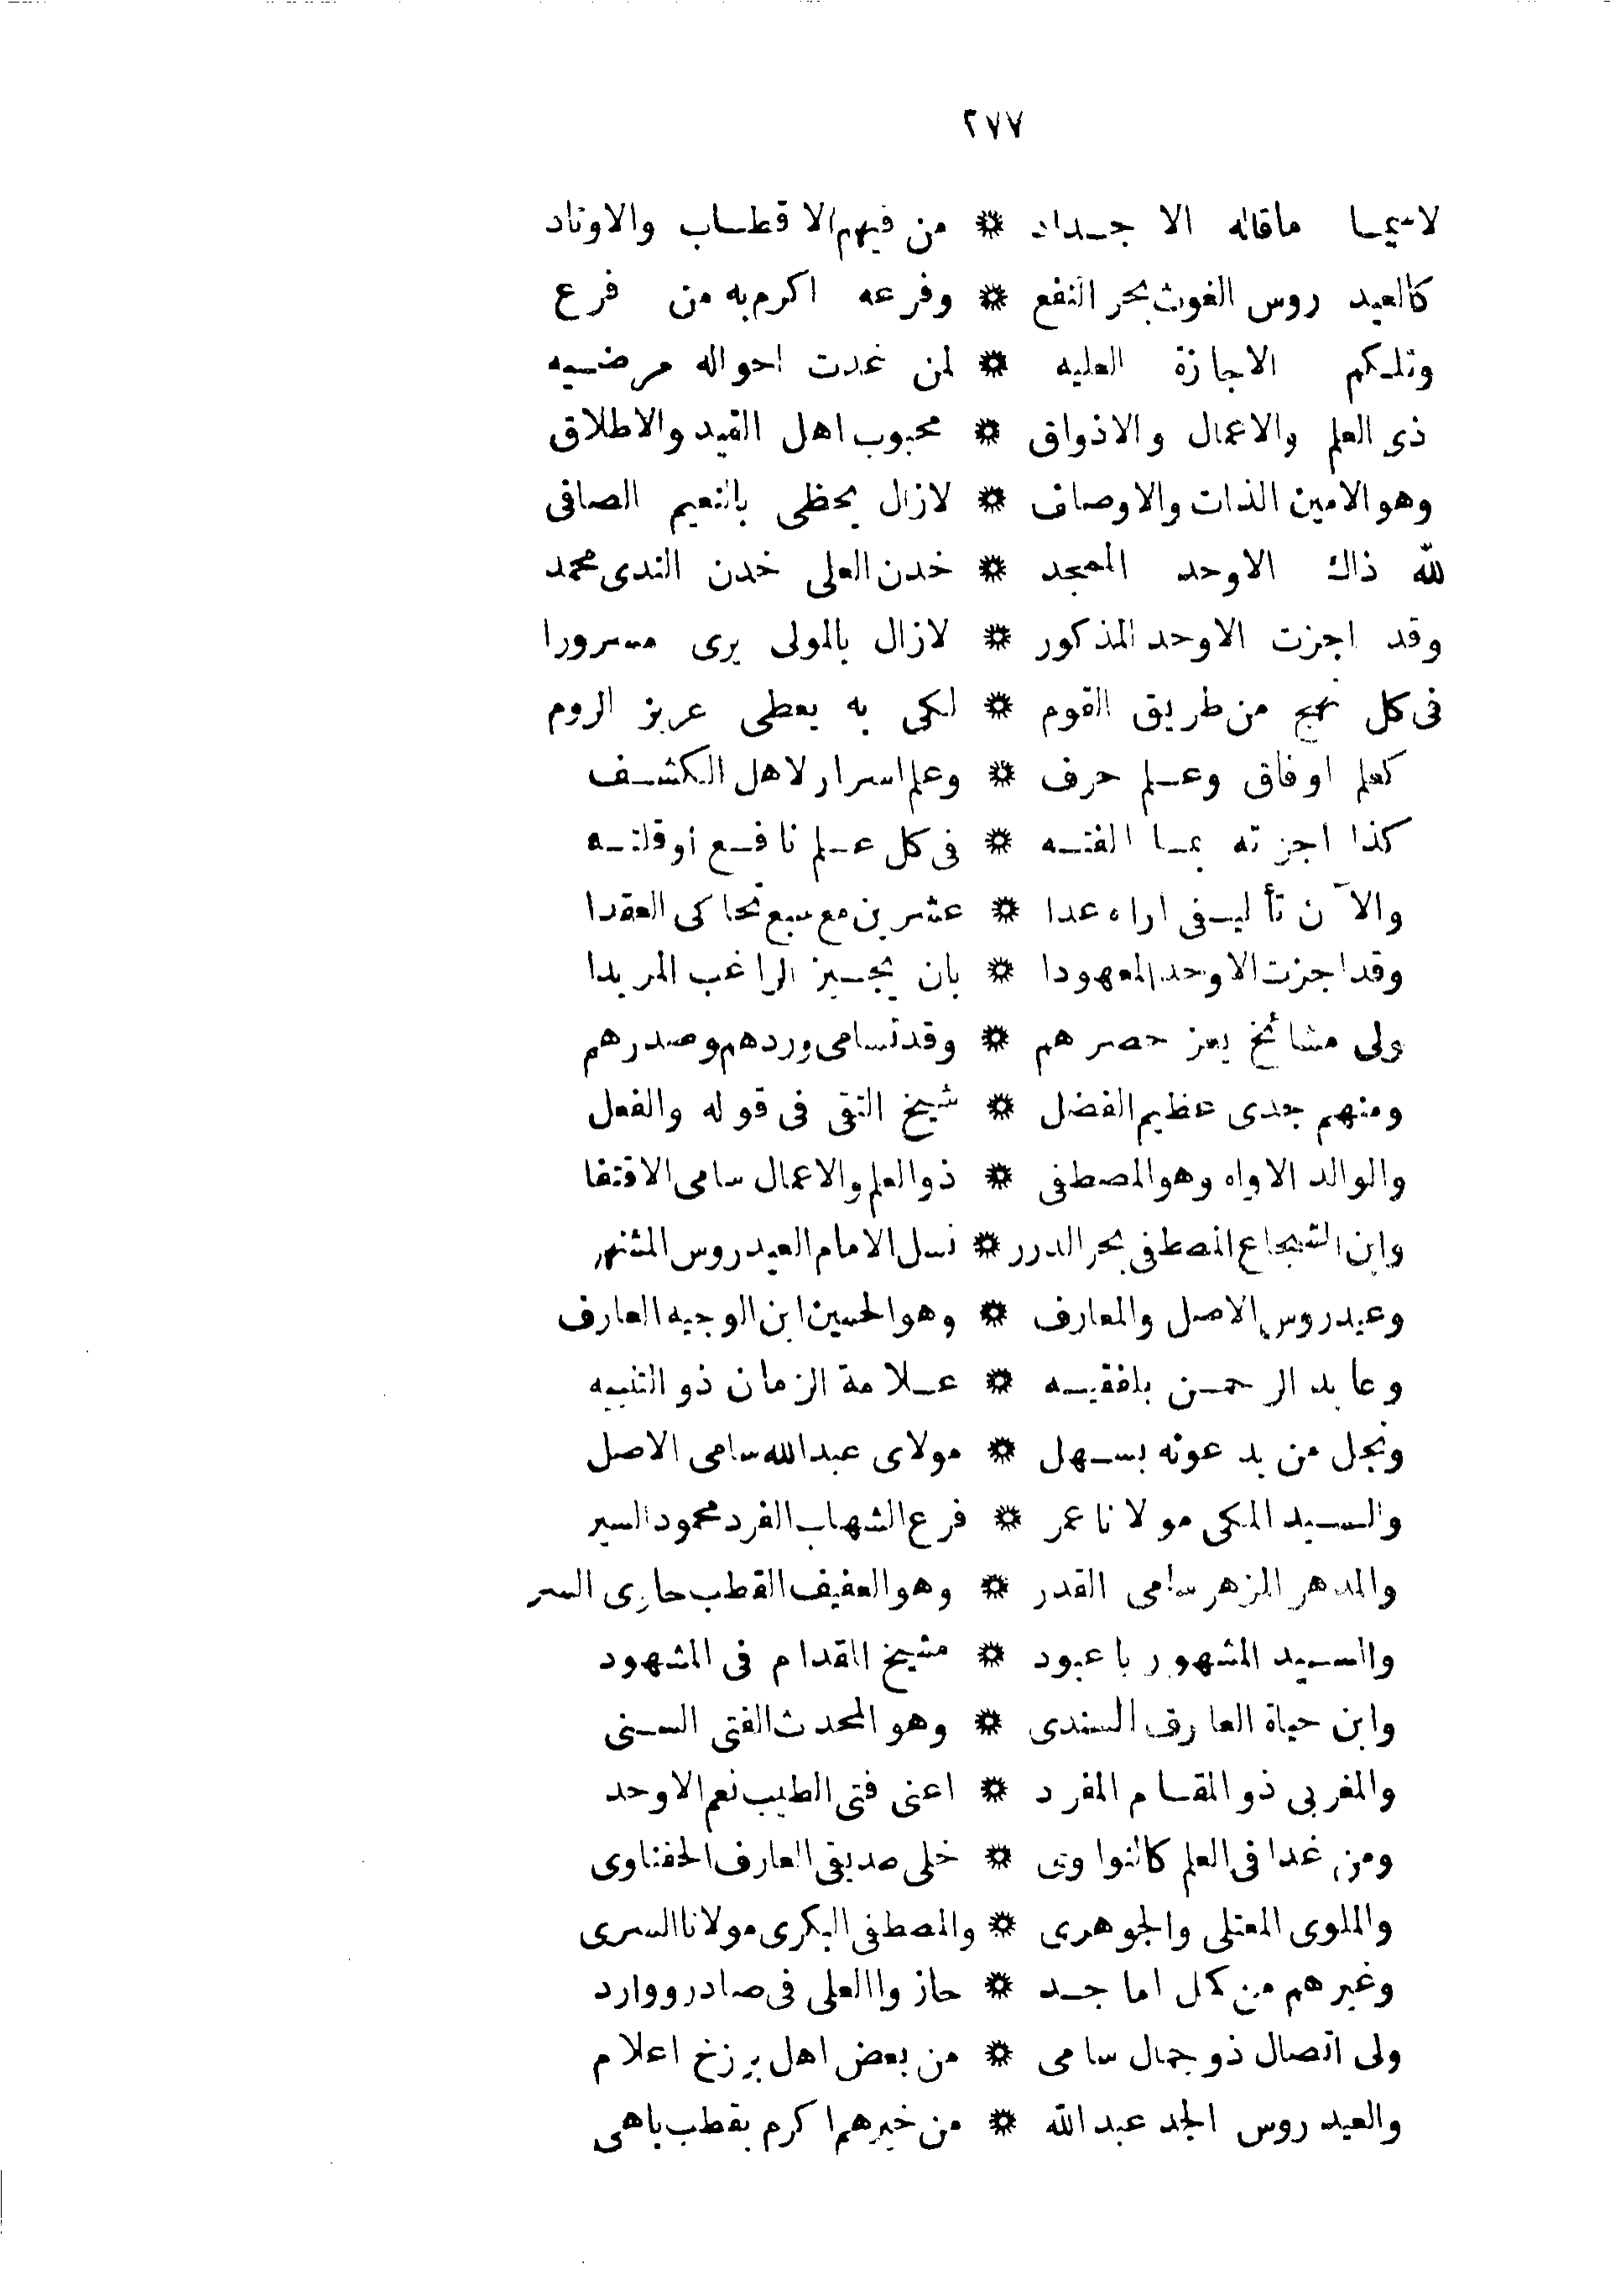 ٢٧٧
لاسيما ماقاله الاجداد * من فيهم الاقطاب والاوتاد
كالعيد روس الغوث بحر النفع * وفرعه اكرم به من فرع
وتلكم الاجازة العليه * لمن غدت احواله مرضيه
ذى العلم والاعمال والاذواق * محبوب اهل القيد والاطلاق
وهو الامين الذات والاوصاف * لازال يحظى بالنعيم الصافى
لله ذاك الاوحد الممجد * خدن العلى خدن الندى محمد
وقد اجزت الاوحد المذكور * لازال بالمولى يرى مسرورا
فى كل نهج من طريق القوم * لكى به يعطى عزيز الروم
كعلم اوفاق وعلم حرف * وعلم اسرار لاهل الكشف
كذا اجزته بما الفته * فى كل علم نافع أوقلته
والآن تأليفى اراه عدا * عشرين مع سبع تحاكى العقدا
وقد اجزت الاوحد المعهودا * بان يجيز الراغب المريدا
ولى مشائخ يعز حصرهم * وقد تسامى وردهم وصدرهم
ومنهم جدى عظيم الفضل * شيخ التقى فى قوله والفعل
والوالد الاواه وهو المصطفى * ذو العلم والاعمال سامى الاقتفا
وابن الشجاع المصطفى بحر الدرر * نسل الامام العيدروس المشتهر
وعيدروس الاصل والمعارف * وهو الحسين ابن الوجيه العارف
وعابد الرحمن بلفقيه * علامة الزمان ذو التنبيه
ونجل من يدعونه بسهل * مولاى عبدالله سامى الاصل
والسيد المكى مولانا عمر * فرع الشهاب الفرد محمود السير
والمدهر المزهر سامى القدر * وهو العفيف القطب حاوى السر
والسيد المشهور باعبود * مشيخ المقدام فى الشهود
وابن حياة العارف السندى * وهو المحدث الفتى السنى
والمغربى ذو المقام المفرد * اعنى فتى الطيب نعم الاوحد
ومن غدا فى العلم كالنواوى * خلى صديقى العارف الحفناوى
والملوى المعتلى والجوهرى * والمصطفى البكرى مولانا السرى
وغيرهم من كل اماجد * حازوا العلى فى صادر ووارد
ولى اتصال ذوجمال سامى * من بعض اهل برزخ اعلام
والعيد روس الجد عبد الله * من خيرهم اكرم بقطب باهى